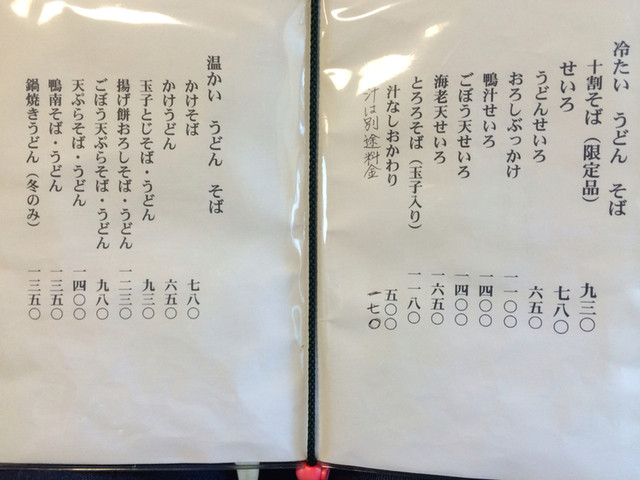 冷たい　うどん　そば
十割そば（限定品）　九三〇
せいろ　七八〇
うどんせいろ　六五〇
おろしぶっかけ　一一〇〇
鴨汁せいろ　一四〇〇
ごぼう天せいろ　一四〇〇
海老天せいろ　一六五〇
とろろそば（玉子入り）　一一八〇
汁なしおかわり　五〇〇
汁は別途料金　一七〇
温かい　うどん　そば
かけそば　七八〇
かけうどん　六五〇
玉子とじそば・うどん　九三〇
揚げ餅おろしそば・うどん　一二三〇
ごぼう天ぷらそば・うどん　九八〇
天ぷらそば・うどん　一四〇〇
鴨南そば・うどん　一三五〇
鍋焼きうどん（冬のみ）　一三五〇